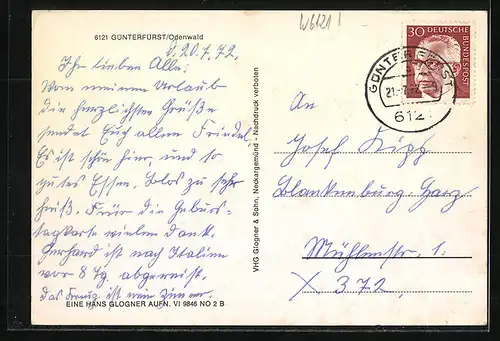 6121 GÜNTERFÜRST/Odenwald
d. 20.7.72.
Ihr lieben Alle!
Vom meinem Urlaub
die herzlichsten Grüße
sendet Euch allen Friedel
Es ist schön hier, und so
gutes Essen. Blos zu sehr
heiß. Für die Geburs-
tagkarte vielen Dank.
Gerhard ist nach Italien
vor 8 Tg. abgereist.
Das ist mein Zimmer.
EINE HANS GLOGNER AUFN. VI 9846 NO 2 B
VHG Glogner & Sohn, Neckargemünd - Nachdruck verboten
W6121!
30 DEUTSCHE
BUNDESPOST
GÜNTERFÜRST
21.-7.72
612
An
Josef Kipp
Blankenburg Harz
Mühlenstr. 1.
X 372